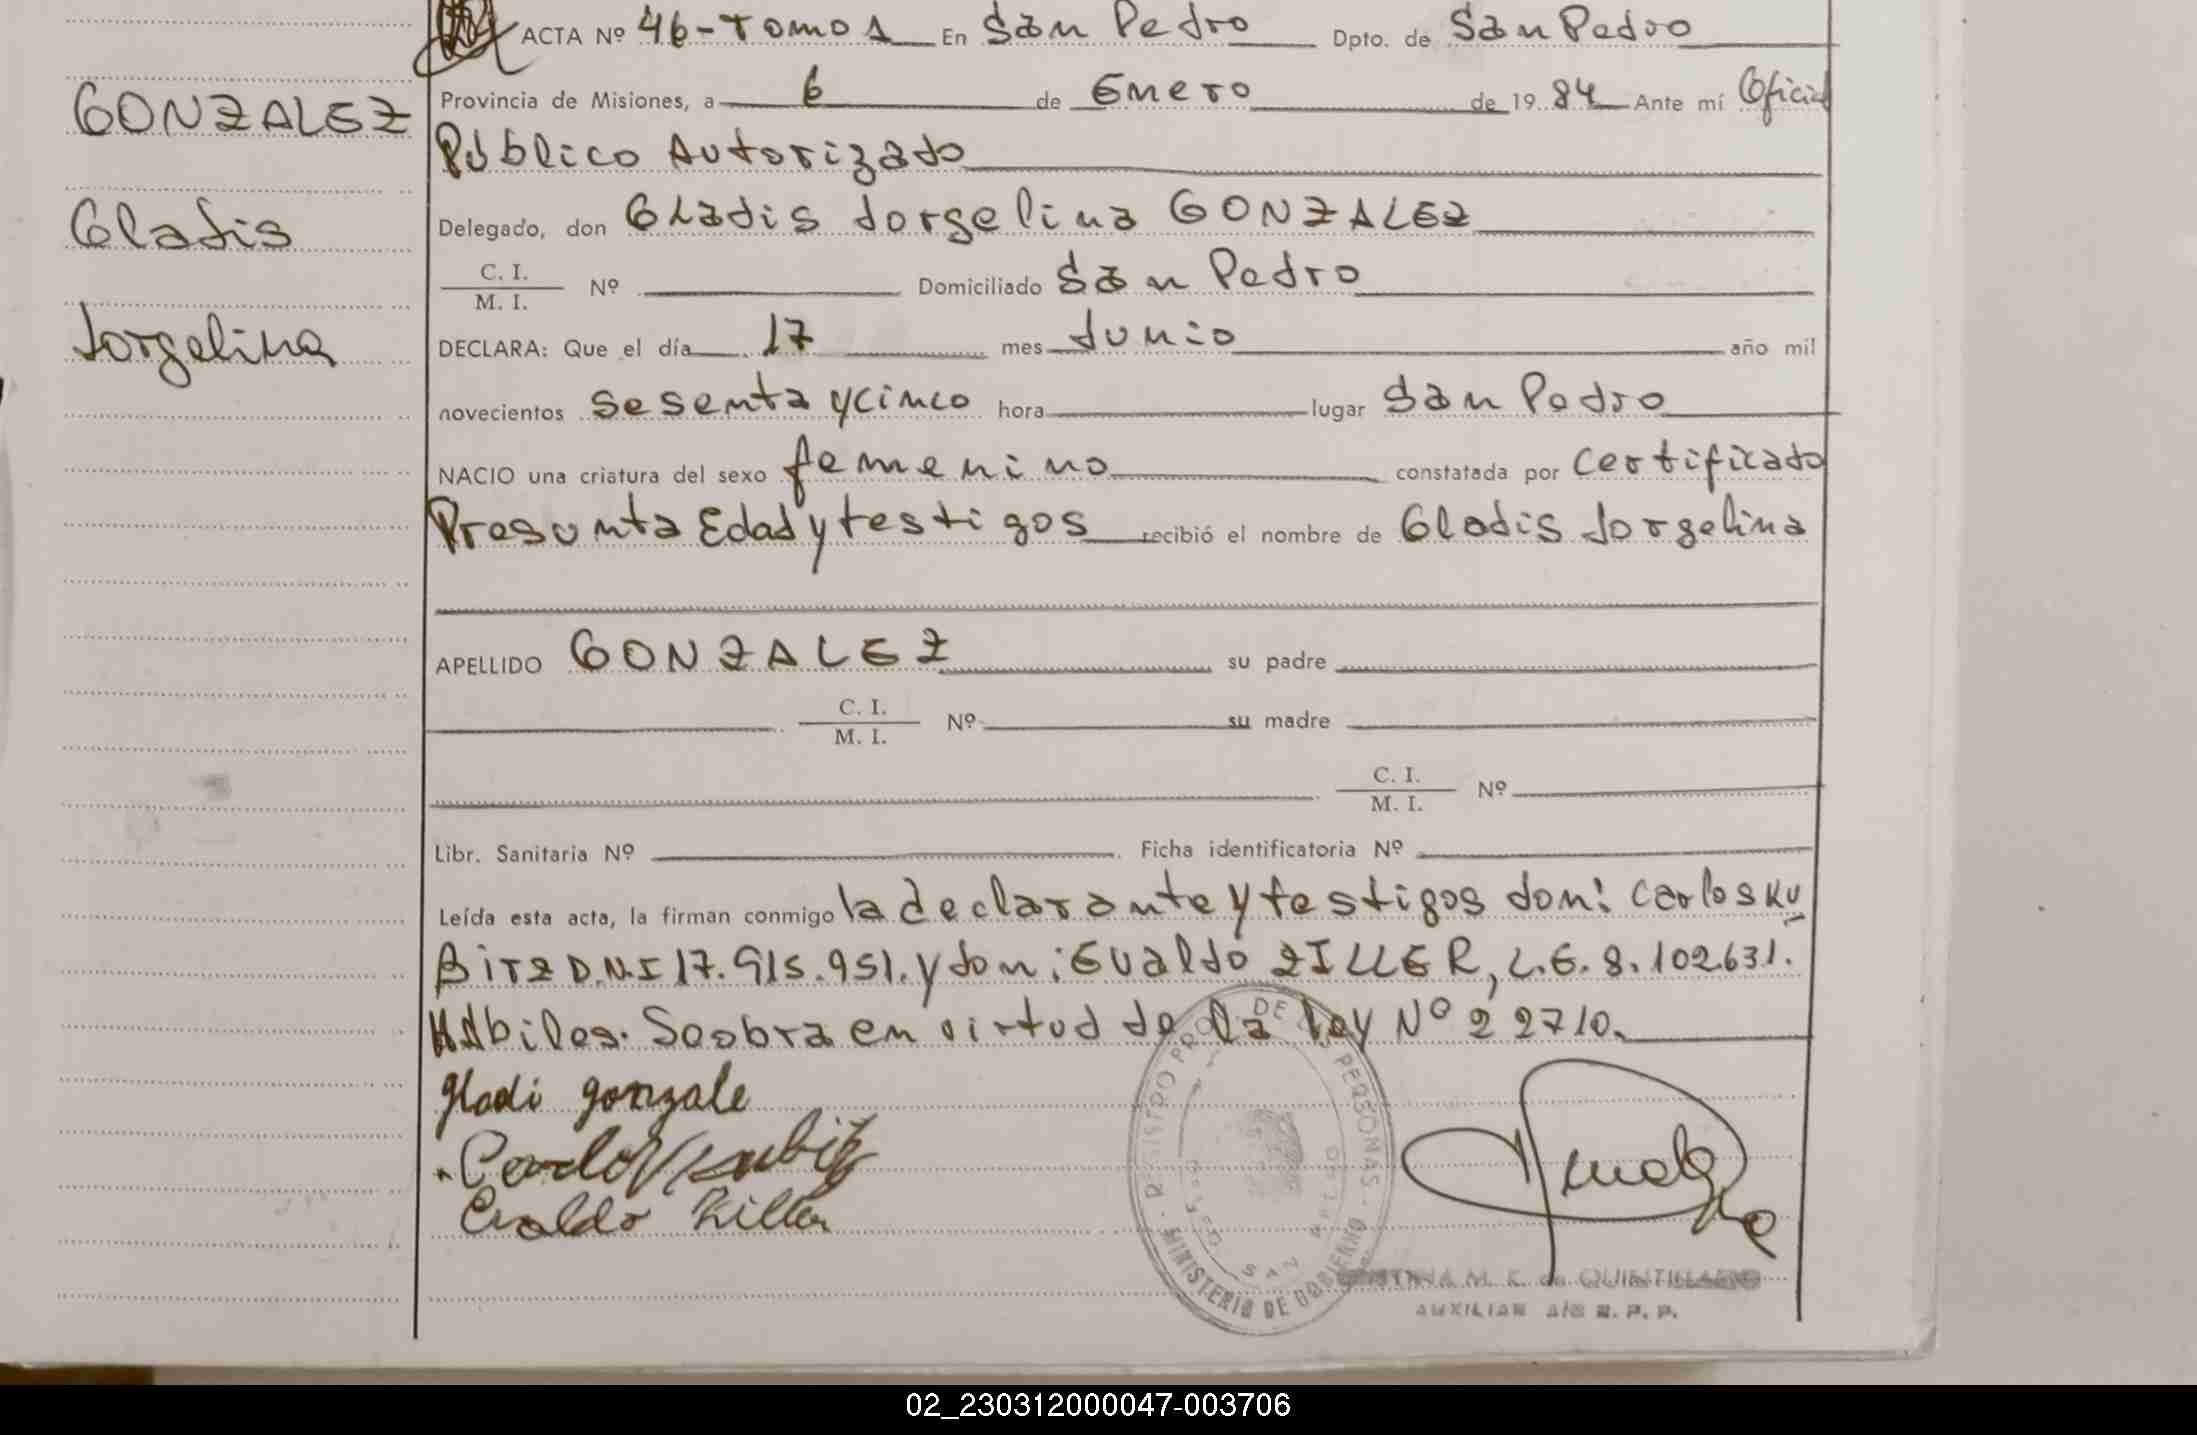 ACTA Nº 46-Tomo 1 En San Pedro Dpto. de San Pedro
GONZALEZ
Gladis
Jorgelina
Provincia de Misiones, a 6 de Enero de 1984 Ante mí Oficial
Público Autorizado
Delegado, don Gladis Jorgelina GONZALEZ
C. I.
M. I. Nº Domiciliado San Pedro
DECLARA: Que el día 17 mes Junio año mil
novecientos sesenta y cinco hora lugar San Pedro
NACIO una criatura del sexo femenino constatada por certificado
Presunta Edad y testigos recibió el nombre de Gladis Jorgelina
APELLIDO GONZALEZ su padre
C. I.
M. I. Nº su madre
C. I.
M. I. Nº
Libr. Sanitaria Nº Ficha identificatoria Nº
Leída esta acta, la firman conmigo la declarante y testigos don: Carlos KU
BITZ D.N.I 17.915.951. y don: EValdo ZILLER, L.E. 8.102.631.
HAbiles. Seobra en virtud de la ley Nº 22710.
gladi gonzale
Carlos Kubitz
Evaldo Ziller
REGISTRO PROV. DE LAS PERSONAS
MINISTERIO DE GOBIERNO
SAN PEDRO
M. K. de QUINTILLANO
AUXILIAR A/C R. P. P.
02_230312000047-003706